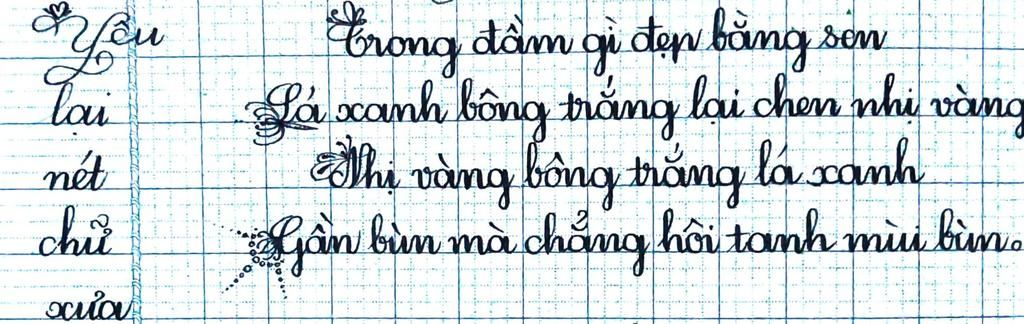 Yêu
lại
nét
chữ
xưa
Trong đầm gì đẹp bằng sen
Lá xanh bông trắng lại chen nhị vàng
Nhị vàng bông trắng lá xanh
Gần bùn mà chẳng hôi tanh mùi bùn.